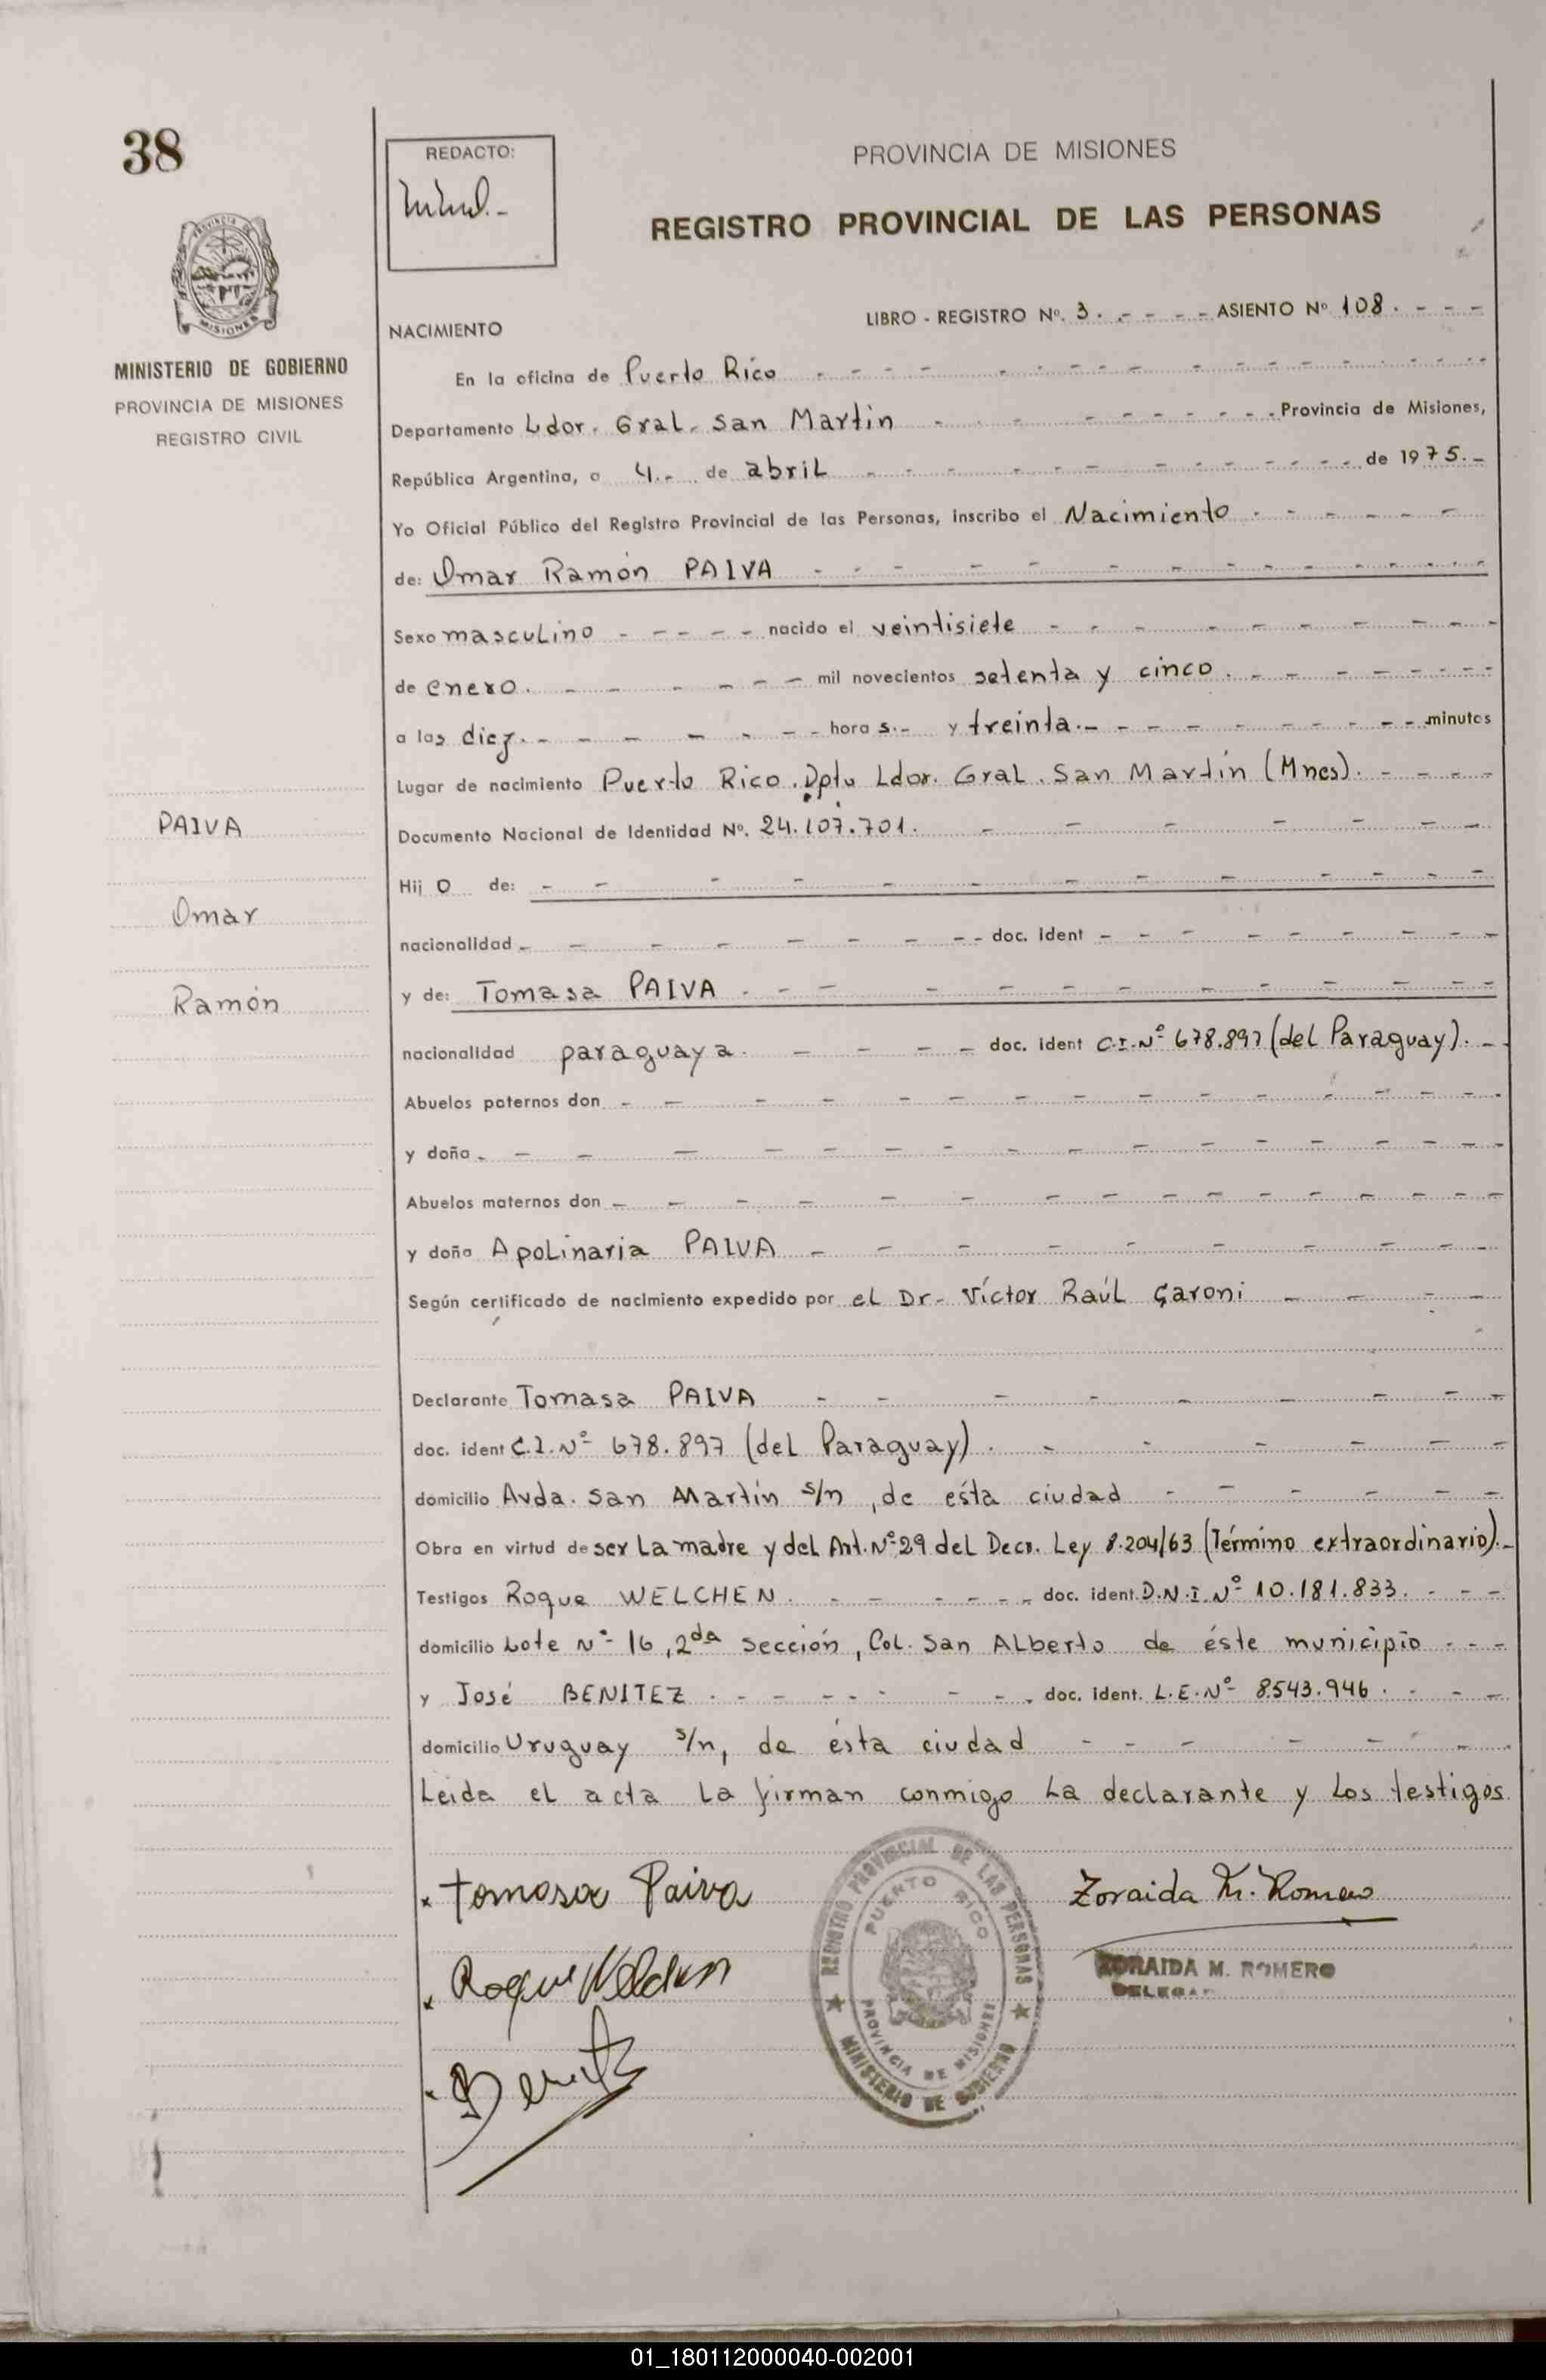 38
REDACTO:
PROVINCIA DE MISIONES
REGISTRO PROVINCIAL DE LAS PERSONAS
MISIONES
MINISTERIO DE GOBIERNO
PROVINCIA DE MISIONES
REGISTRO CIVIL
NACIMIENTO
LIBRO - REGISTRO Nº. 3. - - - - ASIENTO Nº 108. - - -
En la oficina de Puerto Rico
Departamento Ldor. Gral. San Martín - - - Provincia de Misiones,
República Argentina, a 4.- de abril - - - de 1975.-
Yo Oficial Público del Registro Provincial de las Personas, inscribo el Nacimiento
de: Omar Ramón PAIVA
Sexo masculino - - - - - nacido el veintisiete
de enero. - - - mil novecientos setenta y cinco
a las diez.- - - - hora s.- y treinta.- - - - minutos
Lugar de nacimiento Puerto Rico. Dpto Ldor. Gral. San Martín (Mnes).
Documento Nacional de Identidad Nº. 24.107.701.
Hij o de: - - -
nacionalidad - - - doc. ident - - -
y de: Tomasa PAIVA
nacionalidad paraguaya. - - - doc. ident C.I.Nº 678.897 (del Paraguay).-
Abuelos paternos don - - -
y doña - - -
Abuelos maternos don - - -
y doña Apolinaria PAIVA
Según certificado de nacimiento expedido por el Dr. Víctor Raúl Garoni
Declarante Tomasa PAIVA
doc. ident C.I.Nº 678.897 (del Paraguay).
domicilio Avda. San Martín s/n, de ésta ciudad
Obra en virtud de ser la madre y del Art. Nº 29 del Decr. Ley 8.204/63 (Término extraordinario).-
Testigos Roque WELCHEN. - - - doc. ident. D.N.I. Nº 10.181.833. - - -
domicilio Lote Nº 16, 2da sección, Col. San Alberto de éste municipio - - -
y José BENITEZ. - - - doc. ident. L.E. Nº 8543.946. - - -
domicilio Uruguay s/n, de ésta ciudad
Leída el acta la firman conmigo la declarante y los testigos
PAIVA
Omar
Ramón
Tomasa Paiva
Zoraida M. Romero
Roque Welchen
ZORAIDA M. ROMERO
Benitez
REGISTRO PROVINCIAL DE LAS PERSONAS
PUERTO RICO
PROVINCIA DE MISIONES
MINISTERIO DE GOBIERNO
01_180112000040-002001